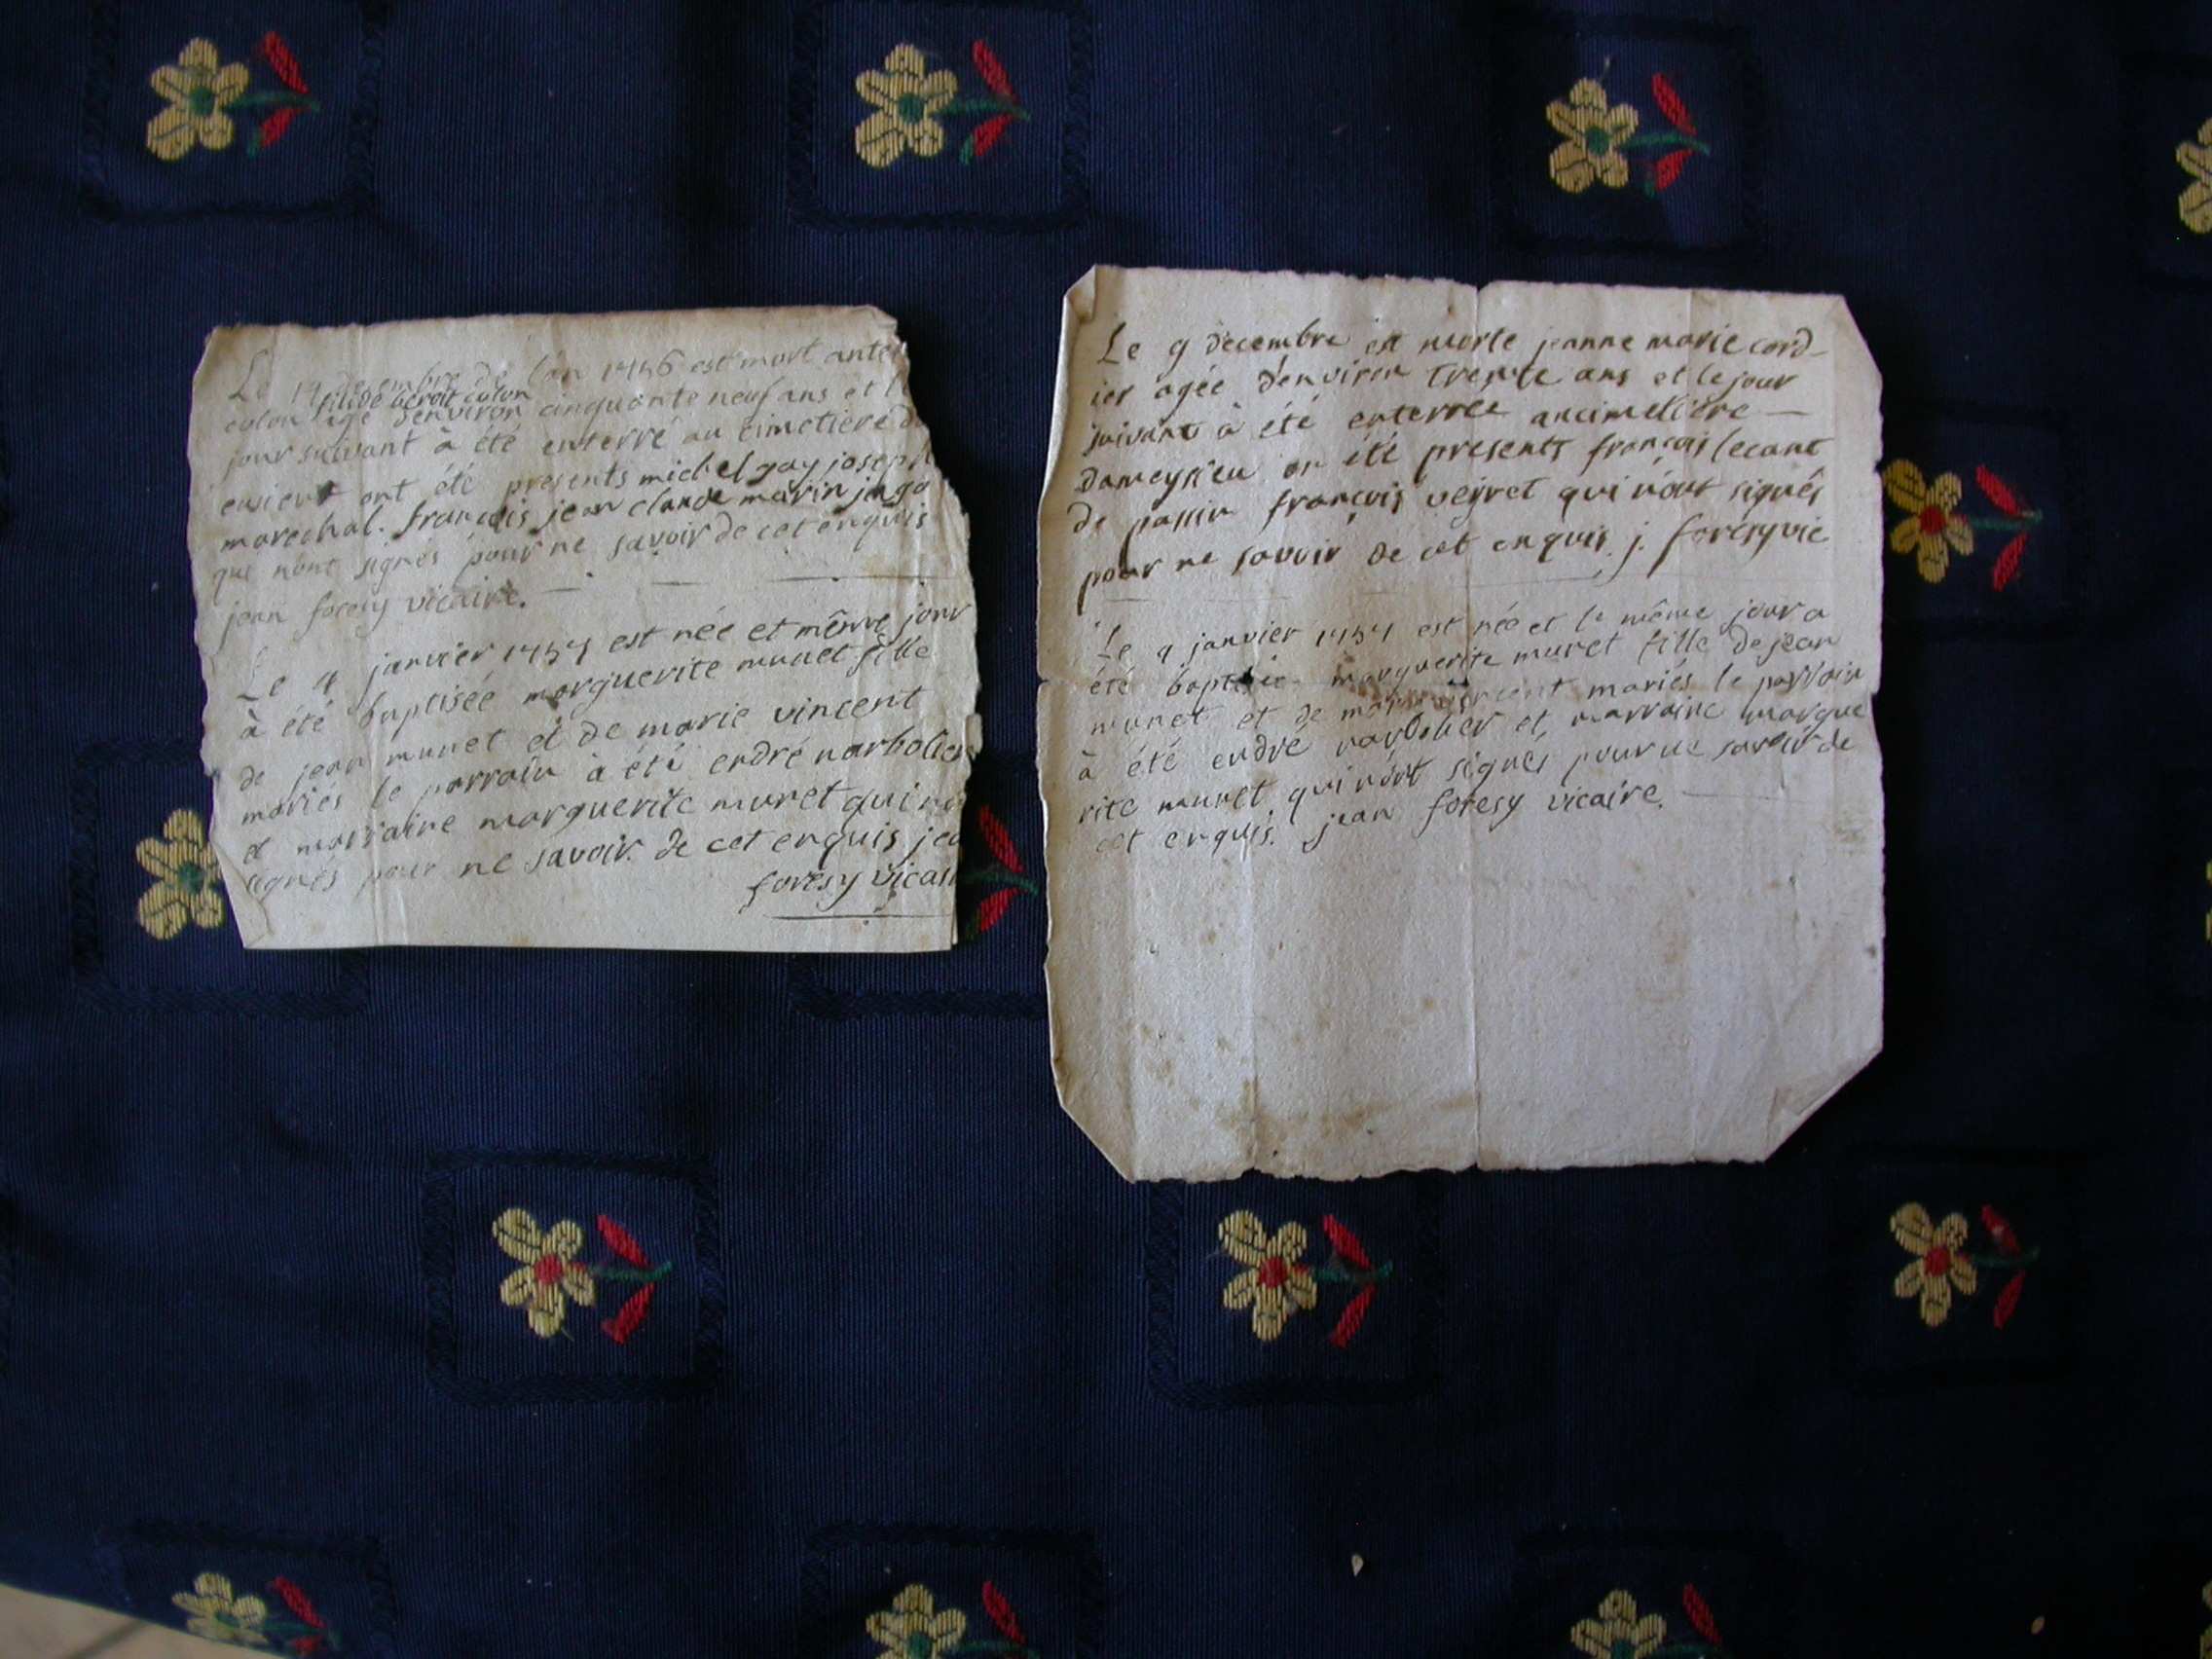 Le 19 decembre de lan 1756 est mort ante
fils de benoit colon
colon agé denviron cinquante neuf ans et l
jour suivant à été enterré au cimetiere d
ont été presents michel gay joseph
marechal. françois jean claude marin
qui nont signés pour ne savoir de cet enquis
jean foresy vicaire.
Le 9 janvier 1757 est née et même jour
à été baptisée marguerite munet fille
de jean munet et de marie vincent
mariés le parrain à été endré narbolier
et marraine marguerite munet qui n
signés pour ne savoir. de cet enquis jea
foresy vicai
Le 9 decembre est morte jeanne marie cord-
ier agée d'environ trente ans et le jour
suivant à été enterrée aucimetiere
dameysieu on été presents françois lecant
de passin françois veyret qui n'ont signés
pour ne savoir de cet enquis j. foresy vic
Le 9 janvier 1757 est née et le même jour a
été baptisée marguerite munet fille de jean
munet et de marie vincent mariés le parrain
à été endré narbolier et marraine margue
rite munet qui n'ont signés pour ne savoir de
cet enquis. jean foresy vicaire.